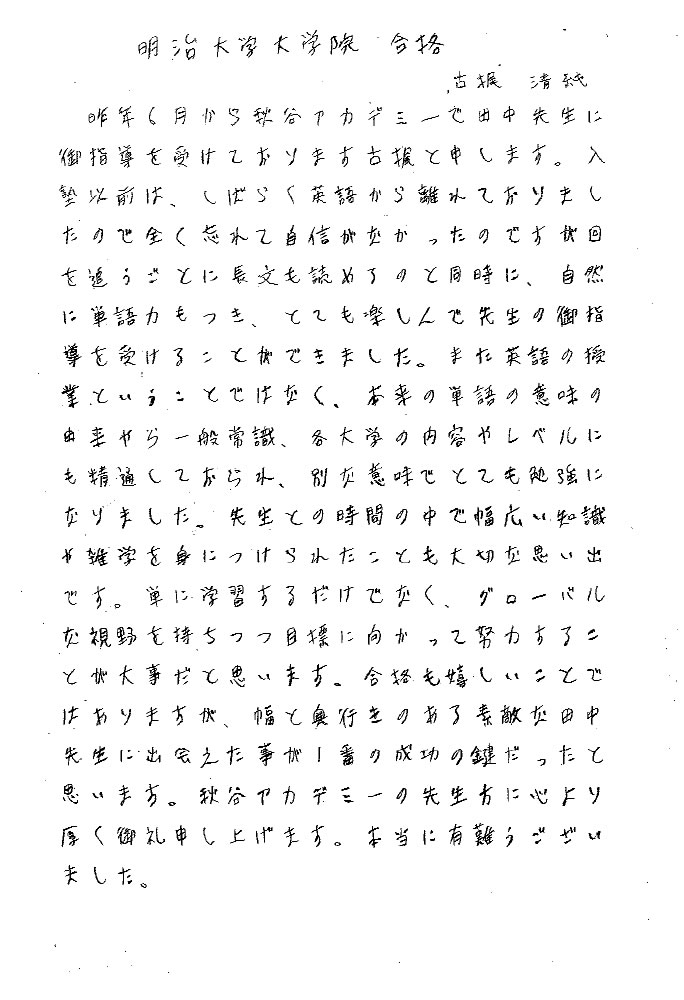 明治大学大学院 合格
古振 清純
昨年6月から秋谷アカデミーで田中先生に
御指導を受けております古振と申します。入
塾以前は、しばらく英語から離れておりまし
たので全く忘れて自信がなかったのですが回
を追うごとに長文も読めるのと同時に、自然
に単語力もつき、とても楽しんで先生の御指
導を受けることができました。また英語の授
業ということではなく、本来の単語の意味の
由来やら一般常識、各大学の内容やレベルに
も精通しておられ、別な意味でとても勉強に
なりました。先生との時間の中で幅広い知識
や雑学を身につけられたことも大切な思い出
です。単に学習するだけでなく、グローバル
な視野を持ちつつ目標に向かって努力するこ
とが大事だと思います。合格も嬉しいことで
はありますが、幅と奥行きのある素敵な田中
先生に出会えた事が1番の成功の鍵だったと
思います。秋谷アカデミーの先生方に心より
厚く御礼申し上げます。本当に有難うござい
ました。